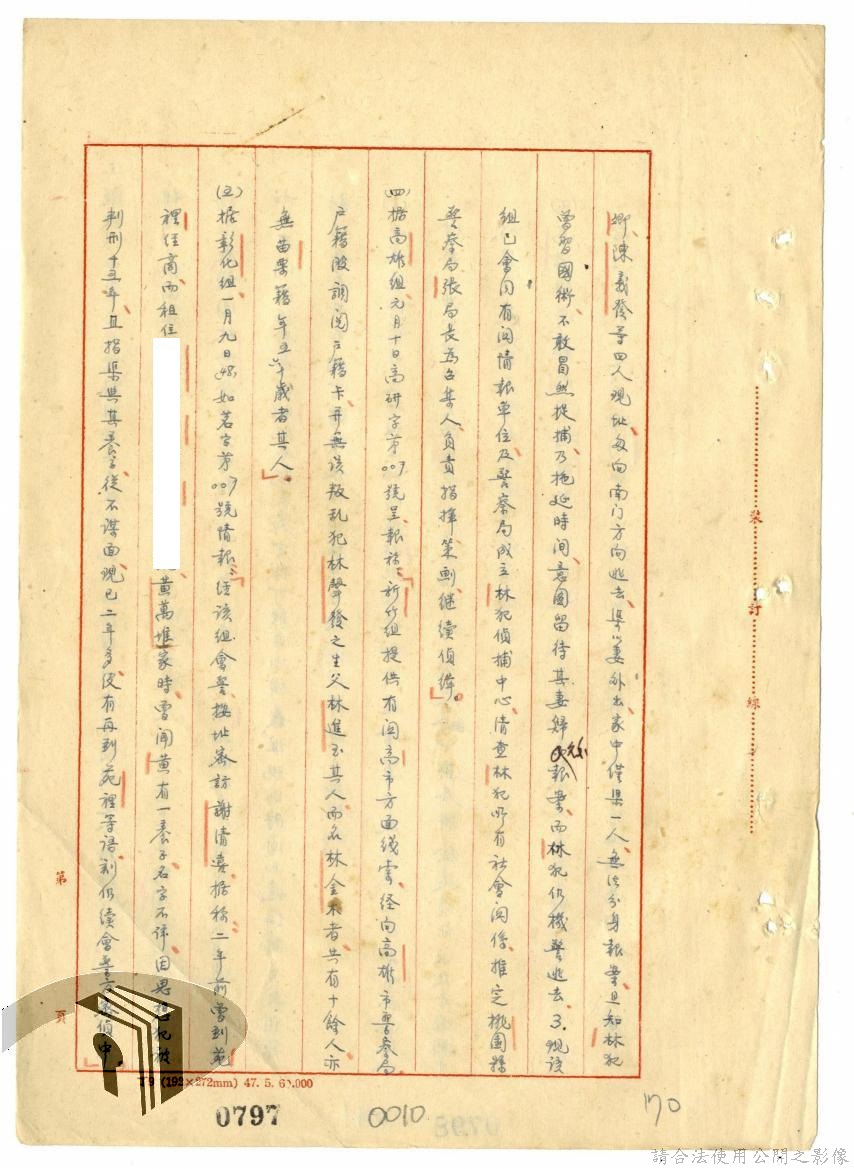 卿、陳義發等四人現址每向南门方向逃去渠以妻外出家中僅渠一人無法分身報案且知林犯
曾習國術、不敢冒然捉捕乃拖延時间、意圖留待其妻歸後報案、而林犯仍機警逃去、3.現該
組已會同有関情報单位及警察局成立林犯偵捕中心、清查林犯所有社會関係推定桃園縣
警察局張局長為召集人、負責指揮策劃继续偵緝。」
(四)據高雄組元月十日高研字第009號呈報称:「新竹組提供有関高市方面线索、经向高雄市警察局
户籍股調閱户籍卡、并無该叛乱犯林聲發之生父林進玉其人、而名林金木者共有十餘人、亦
無苗栗籍年五六十歲者其人。」
(五)據彰化組一月九日 如茗字第009號情報:「经该組會警按址密訪謝清 、據称:二年前曾到苑
裡经商、而租住
黄萬堆家時曾闻黄有一養子名字不详、因思想犯被
判刑十五年、且指渠與其養子從不谋面、現已二年多没有再到苑裡等語、刻仍續會警方密偵中。」
裝
訂
線
第
頁
(192×272mm) 47. 5. 60.000
0797
0010
170
請合法使用公開之影像